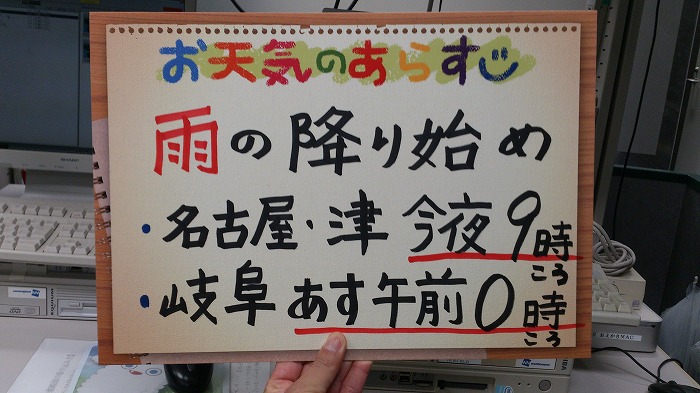 お天気のあらすじ
雨の降り始め
・名古屋・津 今夜9時ころ
・岐阜 あす午前0時ころ